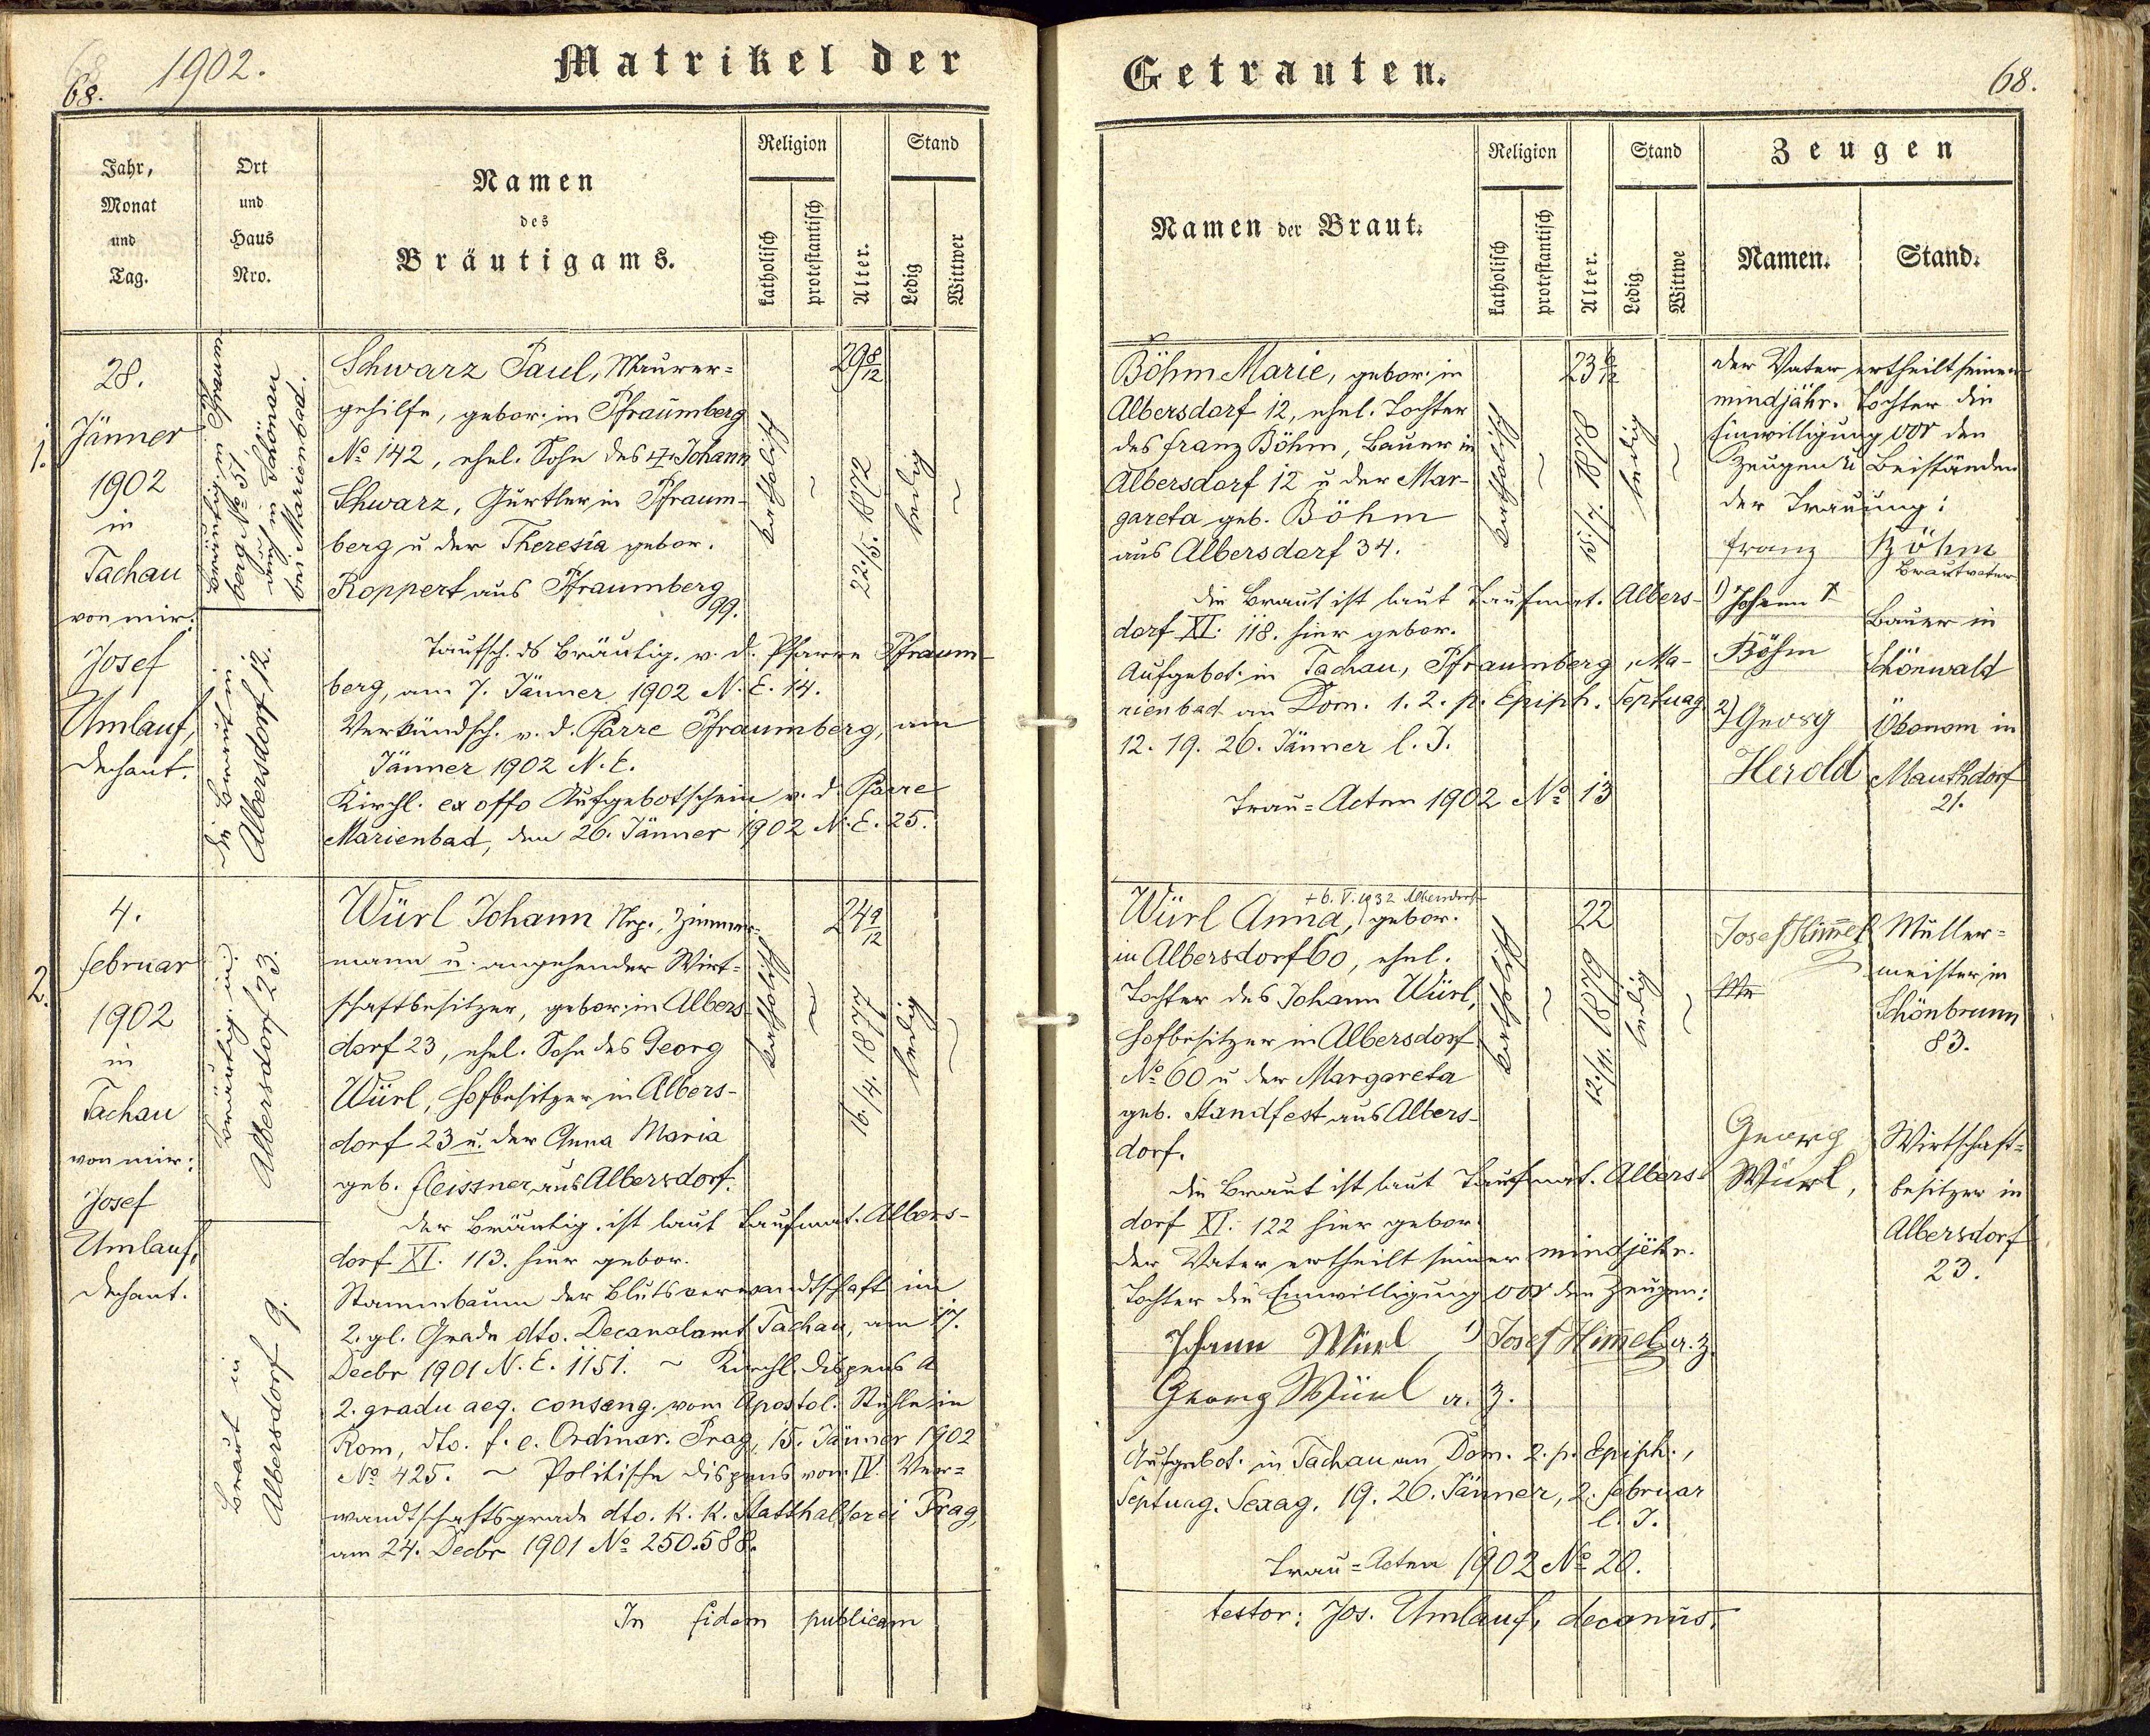 68.
1902.
Matrikel der
Jahr,
Monat
und
Tag.
Ort
und
Haus
Nro.
Namen
des
Bräutigams.
Religion
katholisch
protestantisch
Alter.
Stand
Ledig
Wittwer
1.
28.
Jänner
1902
in
Tachau
von mir:
Josef
Umlauf,
Dechant.
Bräutig. in Pfraum
berg No 51,
auch in Schönau
bei Marienbad.
die Braut in
Albersdorf 12.
Schwarz Paul, Maurer=
gehilfe, gebor. in Pfraumberg
No 142, ehel. Sohn des † Johann
Schwarz, Gürtler in Pfraum-
berg u der Theresia gebor.
Roppert aus Pfraumberg
99.
katholisch
~
29 8/12
22./5. 1872
ledig
~
Taufsch. ds Bräutig. v. d. Pfarre Pfraum-
berg, am 7. Jänner 1902 N. E. 14.
Verkündsch. v. d. Pfarre Pfraumberg, am
Jänner 1902 N. E.
Kirchl. ex offo Aufgebotschein v. d. Pfarre
Marienbad, den 26. Jänner 1902 N. E. 25.
2.
4.
Februar
1902
in
Tachau
von mir:
Josef
Umlauf,
Dechant.
Bräutig. in
Albersdorf 23.
Braut in
Albersdorf 9.
Würl Johann Nep., Zimmer=
mann u. angehender Wirt=
schaftbesitzer, gebor. in Albers-
dorf 23, ehel. Sohn des Georg
Würl, Hofbesitzer in Albers-
dorf 23 u. der Anna Maria
geb. Fleissner aus Albersdorf.
katholisch
~
24 9/12
16./4. 1877
ledig
~
Der Bräutig. ist laut Taufmat. Albers-
dorf XI. 113. hier gebor.
Stammbaum der Blutsverwandtschaft im
2. gl. Grade dto. Decanalamt Tachau, am 17.
Decbr 1901 N. E. 1151. ~ Kirchl. Dispens a
2. gradu aeq. consang. vom Apostol. Stuhle in
Rom, dto. f. e. Ordinar. Prag, 15. Jänner 1902
No 425. ~ Politische Dispens vom IV. Ver=
wandtschaftsgrade dto. K. K. Statthalterei Prag,
am 24. Decbr 1901 No 250.588.
In fidem publicam
Getrauten.
68.
Namen der Braut.
Religion
katholisch
protestantisch
Alter.
Stand
Ledig
Wittwe
Zeugen
Namen.
Stand.
Böhm Marie, gebor. in
Albersdorf 12, ehel. Tochter
des Franz Böhm, Bauer in
Albersdorf 12 u der Mar-
gareta geb. Böhm
aus Albersdorf 34.
katholisch
~
23 6/12
15./7. 1878
ledig
~
die Braut ist laut Taufmat. Albers-
dorf XI. 118. hier gebor.
Aufgebot. in Tachau, Pfraumberg, Ma-
rienbad an Dom. 1. 2. p. Epiph. Septuag
12. 19. 26. Jänner l. J.
Trau=Acten 1902 No 13
der Vater ertheilt seiner
mindjähr. Tochter die
Einwilligung vor den
Zeugen u Beiständen
der Trauung:
Franz Böhm
Brautvater
1) Johann
Böhm
Bauer in
Schönwald
2) Georg
Herold
Ökonom in
Mauthdorf
21.
+ 6. V. 1932
Würl Anna, gebor.
in Albersdorf 60, ehel.
Tochter des Johann Würl,
Hofbesitzer in Albersdorf
No 60 u der Margareta
geb. Standfest aus Albers-
dorf.
katholisch
~
22
12./11. 1879
ledig
~
Josef Himmel
Müller=
meister in
Schönbrunn
83.
Georg
Würl,
Wirtschaft=
besitzer in
Albersdorf
23.
die Braut ist laut Taufmat. Albers-
dorf XI. 122 hier gebor.
der Vater ertheilt seiner mindjähr.
Tochter die Einwilligung vor den Zeugen:
Johann Würl 1) Josef Himmel a. Z.
Georg Würl a. Z.
Aufgebot. in Tachau an Dom. 2. p. Epiph.,
Septuag. Sexag. 19. 26. Jänner, 2. Februar
l. J.
Trau=Acten 1902 No 20.
testor: Jos. Umlauf, decanus.